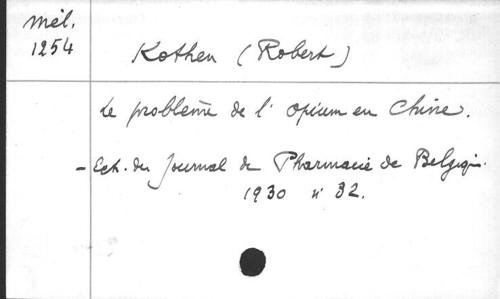 Mél.
1254
Kothen (Robert)
Le problème de l' opium en Chine.
- Ext. du Journal de Pharmacie de Belgiq.
1930 n° 32.